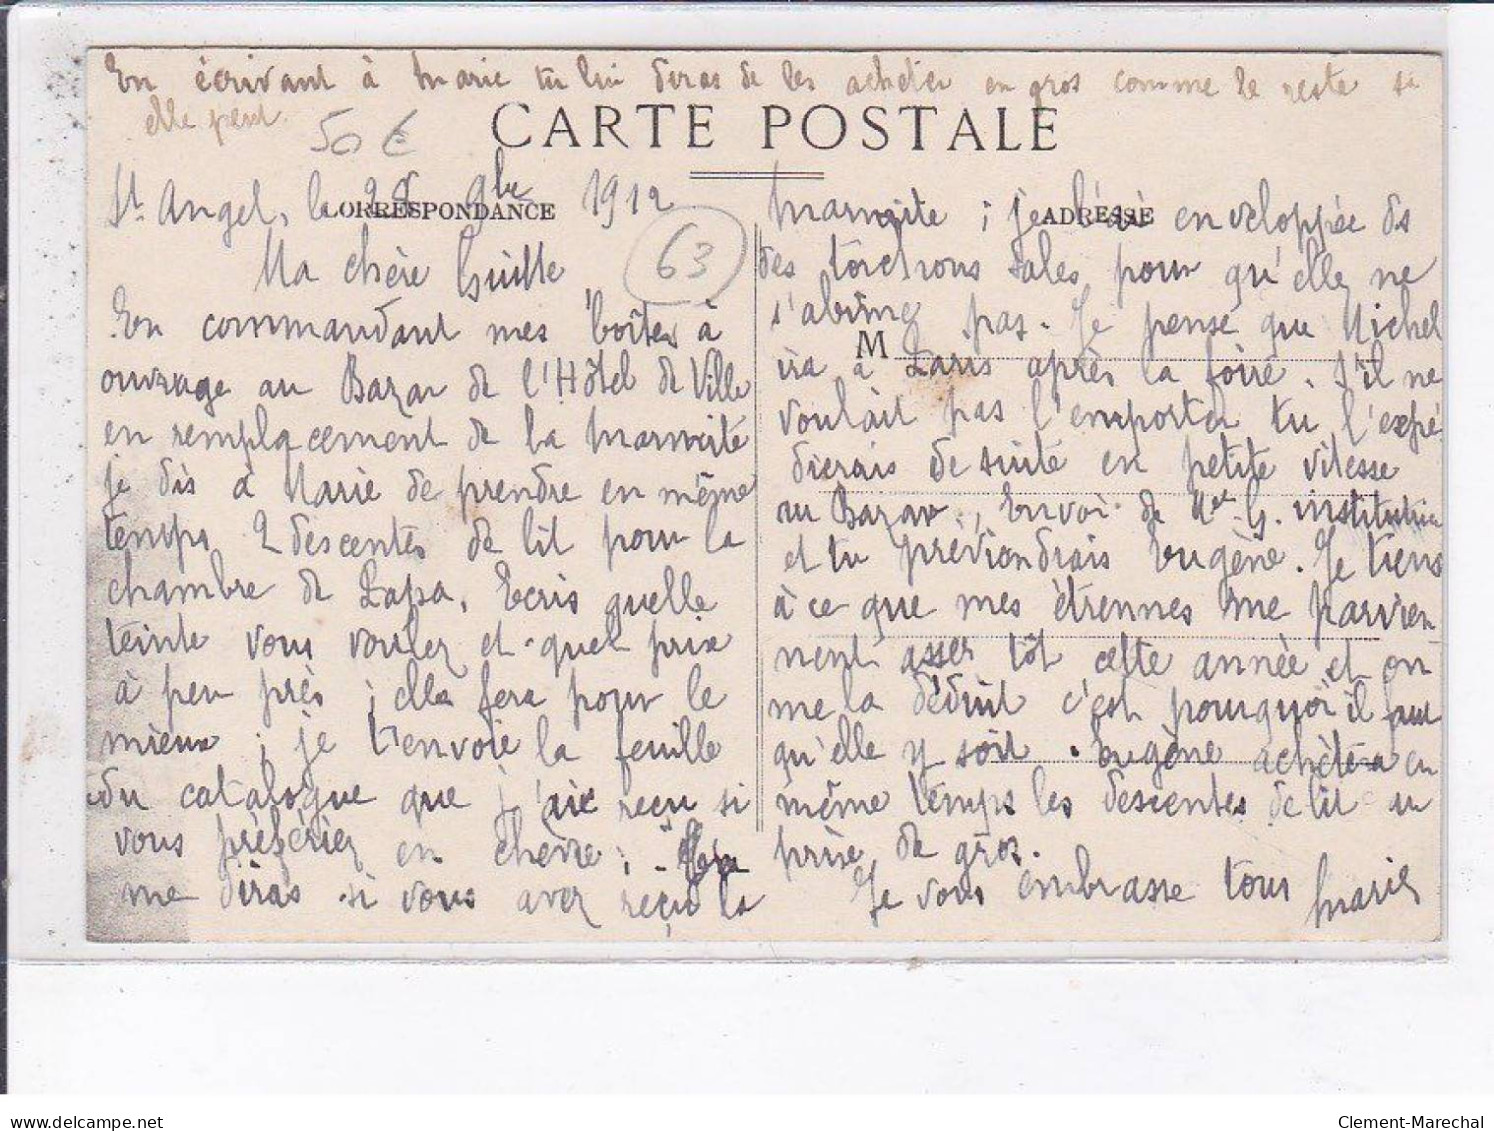 En écrivant à Marie tu lui diras de les acheter en gros comme le reste si
elle peut.
50 €
CARTE POSTALE
CORRESPONDANCE
ADRESSE
St Angel, le 28 9bre 1912
63
Ma chère
En commandant mes boîtes à
ouvrage au Bazar de l'Hôtel de Ville
en remplacement de la marmite
je dis à Marie de prendre en même
temps 2 descentes de lit pour la
chambre de Papa. Ecris quelle
teinte vous voulez et quel prix
à peu près ; elle fera pour le
mieux ; je t'envoie la feuille
du catalogue que j'aie reçu si
vous préfériez en chèvre ; Tu
me diras si vous avez reçu la
marmite ; je l'ai enveloppée ds
des torchons sales pour qu'elle ne
s'abîme pas. Je pense que Michel
M
ira à Paris après la foire. S'il ne
voulait pas l'emporter tu l'expé
dierais de suite en petite vitesse
au Bazar., Envoi de Mme G. institutrice
et tu préviendrais Eugène. Je tiens
à ce que mes étrennes me parvien
nent assez tôt cette année et on
me la déduit c'est pourquoi il faut
qu'elle y soit. Eugène achètera en
même temps les descentes de lit au
prix de gros.
Je vous embrasse tous Marie
delcampe.net
Clement-Marechal